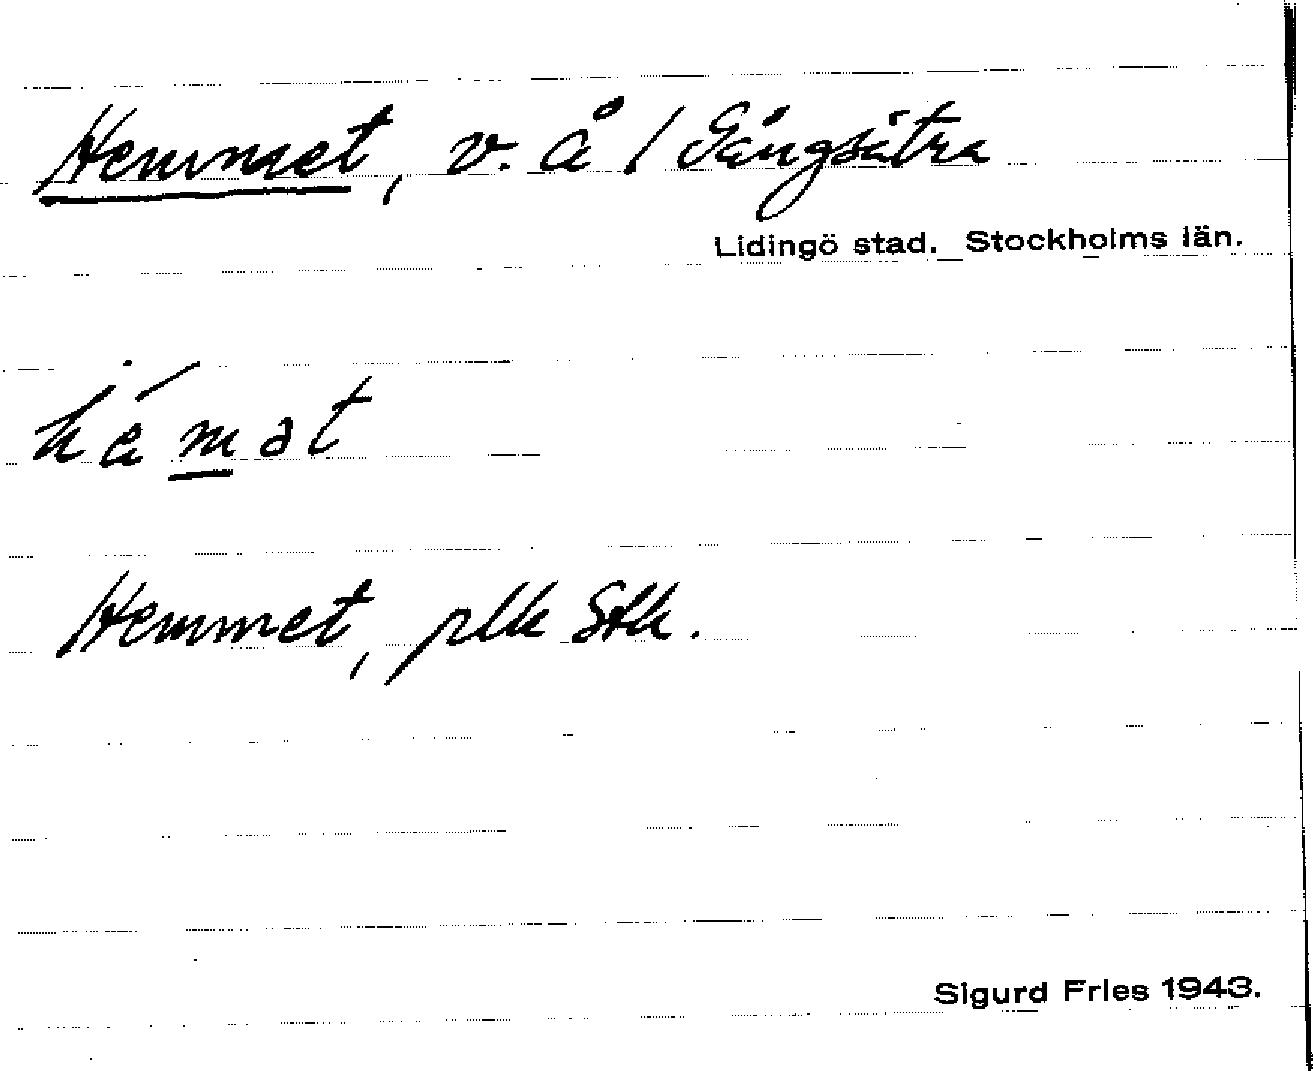 Hemmet, v. å / Gångsätra
Lidingö stad. Stockholms län.
hémət
Hemmet, plk Stk.
Sigurd Fries 1943.